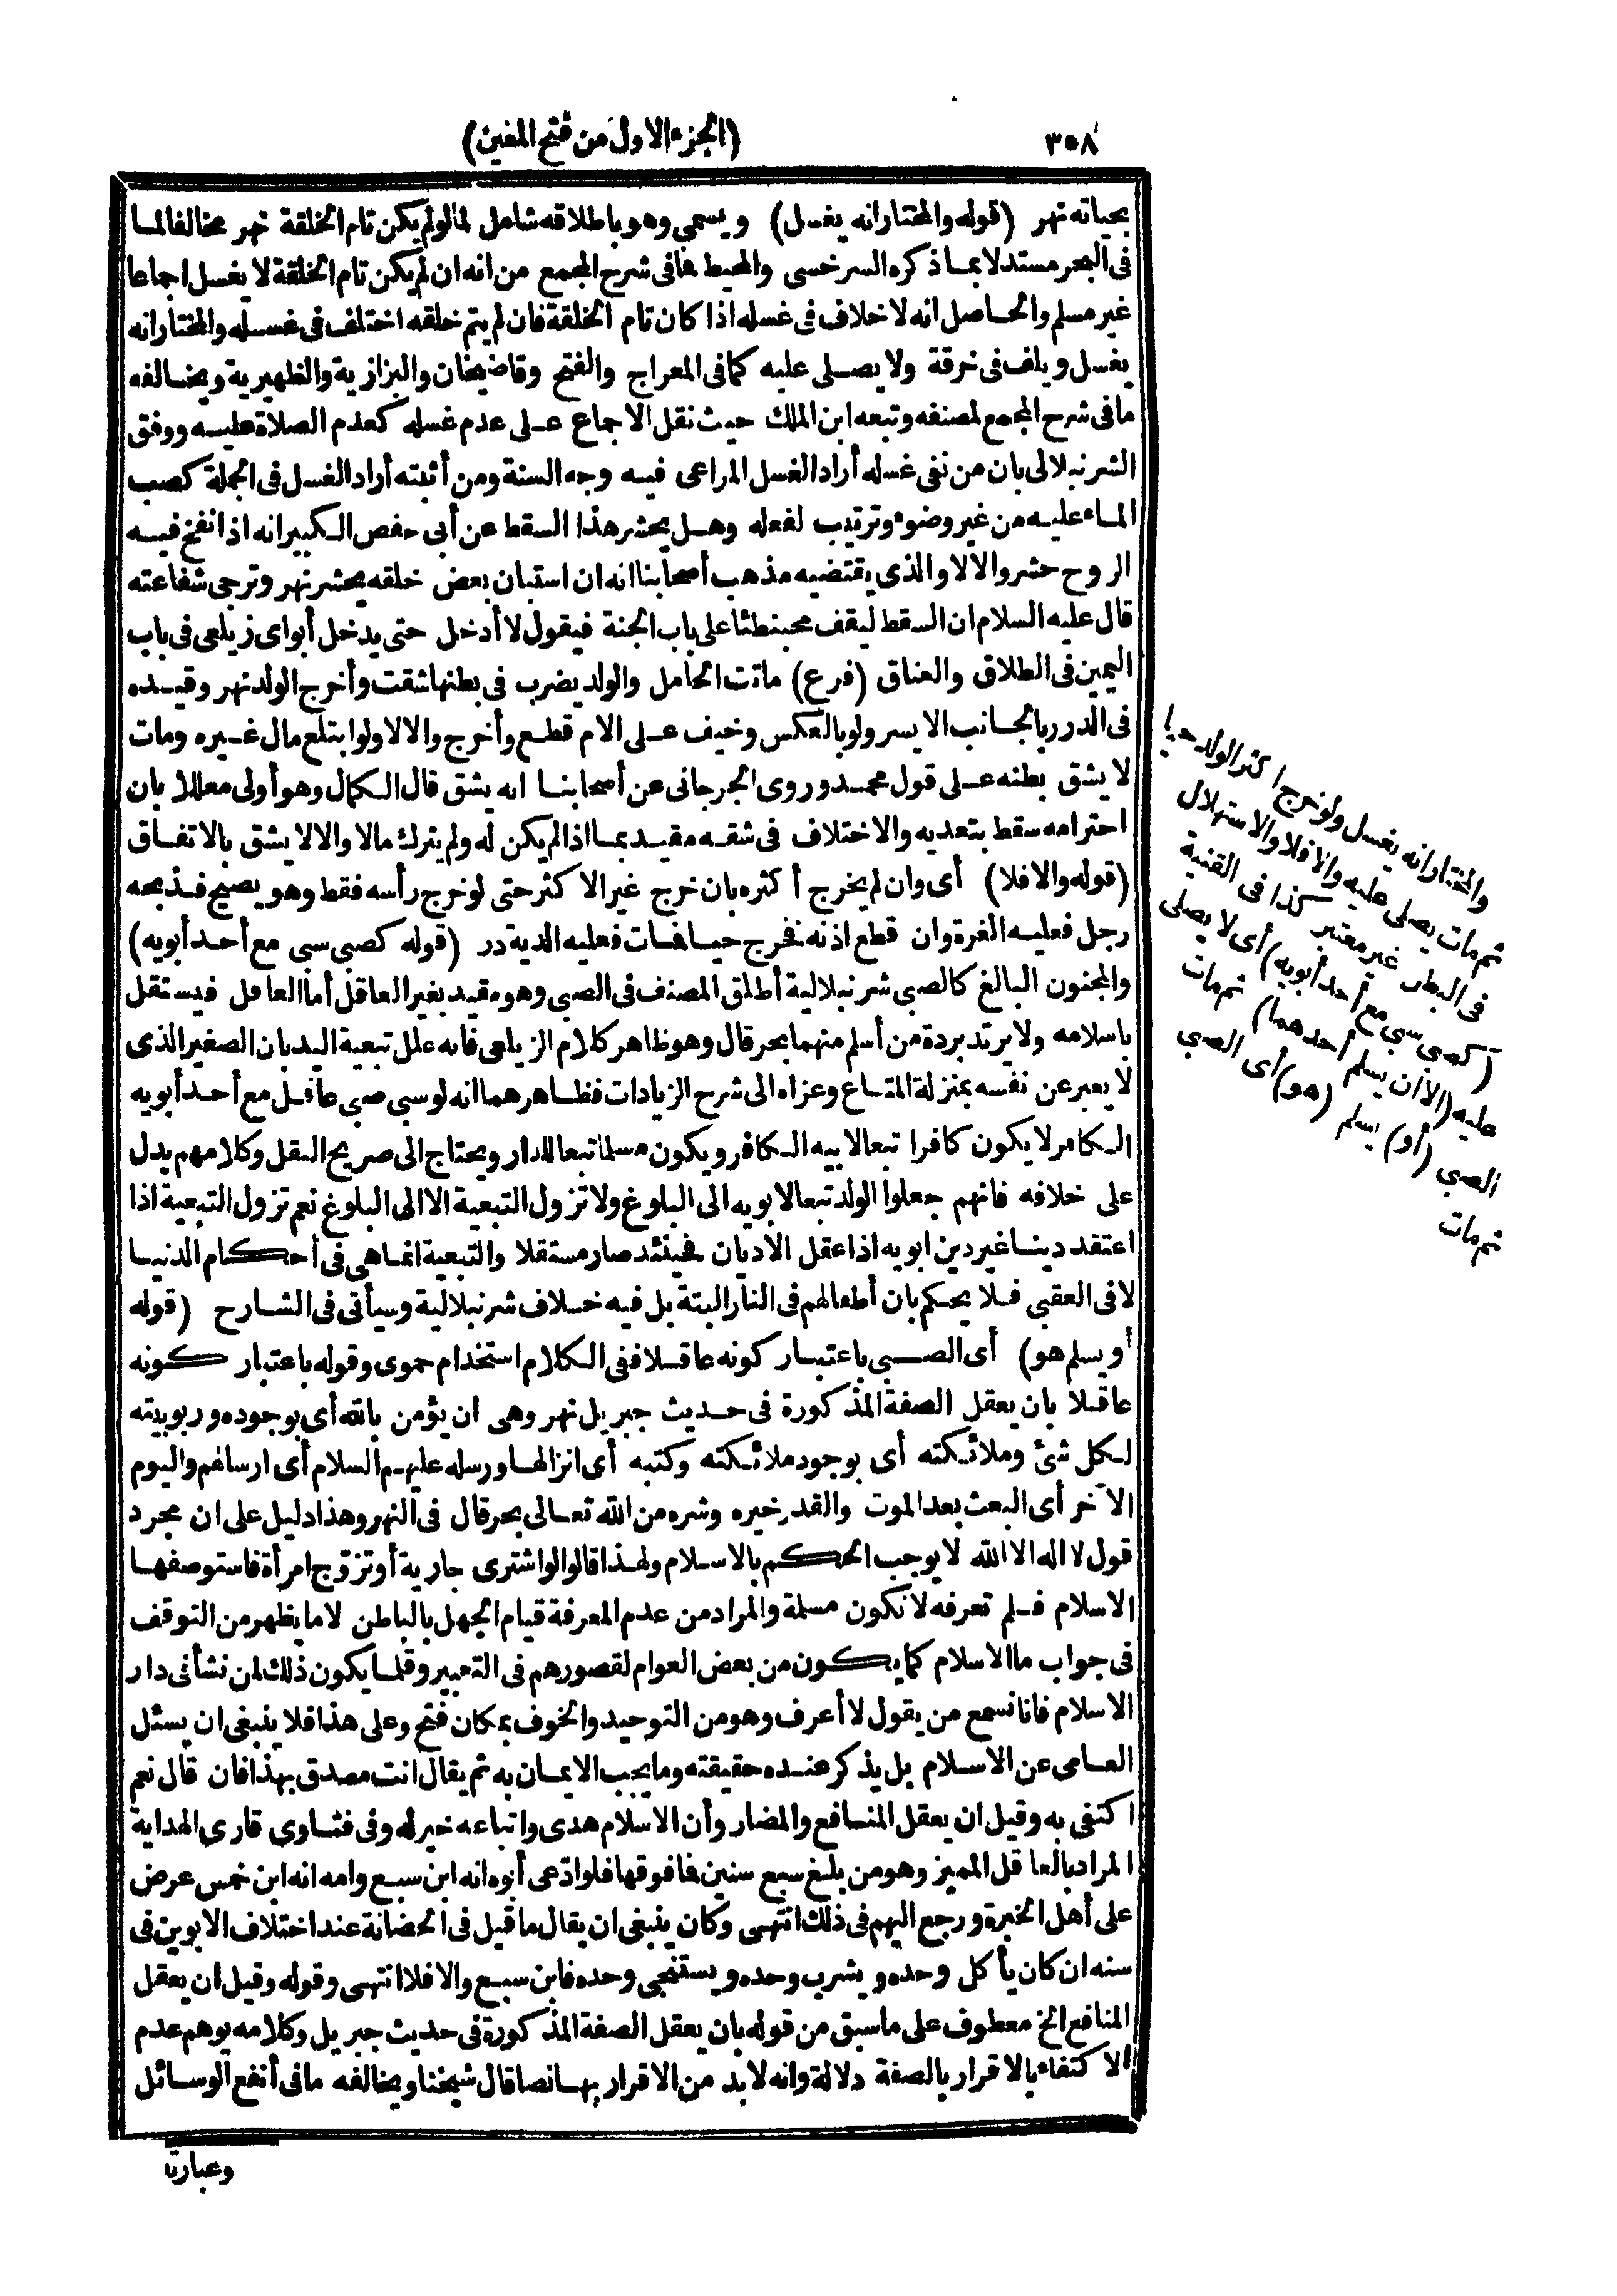 ٣٥٨
(الجزء الاول من فتح المعين)
بحياته نهر (قوله والمختارانه يغسل) ويسمى وهو باطلاقه شامل لما لو لم يكن تام الخلقة نهر مخالفا لما
فى البحر مستدلا بما ذكره السرخسى والمحيط فما فى شرح المجمع من انه ان لم يكن تام الخلقة لا يغسل اجماعا
غير مسلم والحاصل انه لا خلاف فى غسله اذا كان تام الخلقة فان لم يتم خلقه اختلف فى غسله والمختار انه
يغسل ويلف فى خرقة ولا يصلى عليه كما فى المعراج والفتح وقاضيخان والبزازية والظهيرية ويخالفه
ما فى شرح المجمع لمصنفه وتبعه ابن الملك حيث نقل الاجماع على عدم غسله كعدم الصلاة عليه ووفق
الشرنبلالى بان من نفى غسله أراد الغسل المراعى فيه وجه السنة ومن أثبته أراد الغسل فى الجملة كصب
الماء عليه من غير وضوء وترتيب لفعله وهل يحشر هذا السقط عن أبى حفص الكبير انه اذا نفخ فيه
الروح حشر والا لا والذى يقتضيه مذهب أصحابنا انه ان استبان بعض خلقه يحشر نهر وترجى شفاعته
قال عليه السلام ان السقط ليقف محبنطئا على باب الجنة فيقول لا أدخل حتى يدخل أبواى زيلعى فى باب
اليمين فى الطلاق والعتاق (فرع) ماتت الحامل والولد يضرب فى بطنها شقت وأخرج الولد نهر وقيده
فى الدرر بالجانب الايسر ولو بالعكس وخيف على الام قطع وأخرج والا لا ولو ابتلع مال غيره ومات
لا يشق بطنه على قول محمد وروى الجرجانى عن أصحابنا انه يشق قال الكمال وهو أولى معللا بان
احترامه سقط بتعديه والاختلاف فى شقه مقيد بما اذا لم يكن له ولم يترك مالا والا لا يشق بالاتفاق
(قوله والافلا) أى وان لم يخرج أكثره بان خرج غير الاكثر حتى لو خرج رأسه فقط وهو يصيح فذبحه
رجل فعليه الغرة وان قطع اذنه فخرج حيا فمات فعليه الدية در (قوله كصبى سبى مع أحد أبويه)
والمجنون البالغ كالصبى شرنبلالية أطلق المصنف فى الصبى وهو مقيد بغير العاقل أما العاقل فيستقل
باسلامه ولا يرتد بردة من أسلم منهما بحر قال وهو ظاهر كلام الزيلعى فانه علل تبعية اليد بان الصغير الذى
لا يعبر عن نفسه بمنزلة المتاع وعزاه الى شرح الزيادات فظاهرهما انه لو سبى صبى عاقل مع أحد أبويه
الكافر لا يكون كافرا تبعا لابيه الكافر ويكون مسلما تبعا للدار ويحتاج الى صريح النقل وكلامهم يدل
على خلافه فانهم جعلوا الولد تبعا لابويه الى البلوغ ولا تزول التبعية الا الى البلوغ نعم تزول التبعية اذا
اعتقد دينا غير دين ابويه اذا عقل الاديان فحينئذ صار مستقلا والتبعية انما هى فى أحكام الدنيا
لا فى العقبى فلا يحكم بان أطفالهم فى النار البتة بل فيه خلاف شرنبلالية وسيأتى فى الشارح (قوله
أو يسلم هو) أى الصبى باعتبار كونه عاقلا ففى الكلام استخدام حموى وقوله باعتبار كونه
عاقلا بان يعقل الصفة المذكورة فى حديث جبريل نهر وهى ان يؤمن بالله أى بوجوده وربوبيته
لكل شئ وملائكته أى بوجود ملائكته وكتبه أى انزالها ورسله عليهم السلام أى ارسالهم واليوم
الآخر أى البعث بعد الموت والقدر خيره وشره من الله تعالى بحر قال فى النهر وهذا دليل على ان مجرد
قول لا اله الا الله لا يوجب الحكم بالاسلام ولهذا قالوا لو اشترى جارية أو تزوّج امرأة فاستوصفها
الاسلام فلم تعرفه لا تكون مسلمة والمراد من عدم المعرفة قيام الجهل بالباطن لا ما يظهر من التوقف
فى جواب ما الاسلام كما يكون من بعض العوام لقصورهم فى التعبير وقلما يكون ذلك لمن نشأ فى دار
الاسلام فانا نسمع من يقول لا أعرف وهو من التوحيد والخوف بمكان فتح وعلى هذا فلا ينبغى ان يسئل
العامى عن الاسلام بل يذكر عنده حقيقته وما يجب الايمان به ثم يقال انت مصدق بهذا فان قال نعم
اكتفى به وقيل ان يعقل المنافع والمضار وأن الاسلام هدى واتباعه خير له وفى فتاوى قارى الهداية
المراد بالعاقل المميز وهو من بلغ سبع سنين فما فوقها فلو ادّعى أبوه انه ابن سبع وامه انه ابن خمس عرض
على أهل الخبرة ورجع اليهم فى ذلك انتهى وكان ينبغى ان يقال ما قيل فى الحضانة عند اختلاف الابوين فى
سنه ان كان يأكل وحده ويشرب وحده ويستنجى وحده فابن سبع والا فلا انتهى وقوله وقيل ان يعقل
المنافع الخ معطوف على ما سبق من قوله بان يعقل الصفة المذكورة فى حديث جبريل وكلامه يوهم عدم
الاكتفاء بالاقرار بالصفة دلالة وانه لابد من الاقرار بها نصا قال شيخنا ويخالفه ما فى أنفع الوسائل
وعبارة
والمختار انه يغسل ولو خرج اكثر الولد حيا
ثم مات يصلى عليه والا فلا والاستهلال
فى البطن غير معتبر كذا فى القنية
(كصبى سبى مع أحد أبويه) أى لا يصلى
عليه (الا ان يسلم أحدهما) ثم مات
الصبى (أو) يسلم (هو) أى الصبى
ثم مات